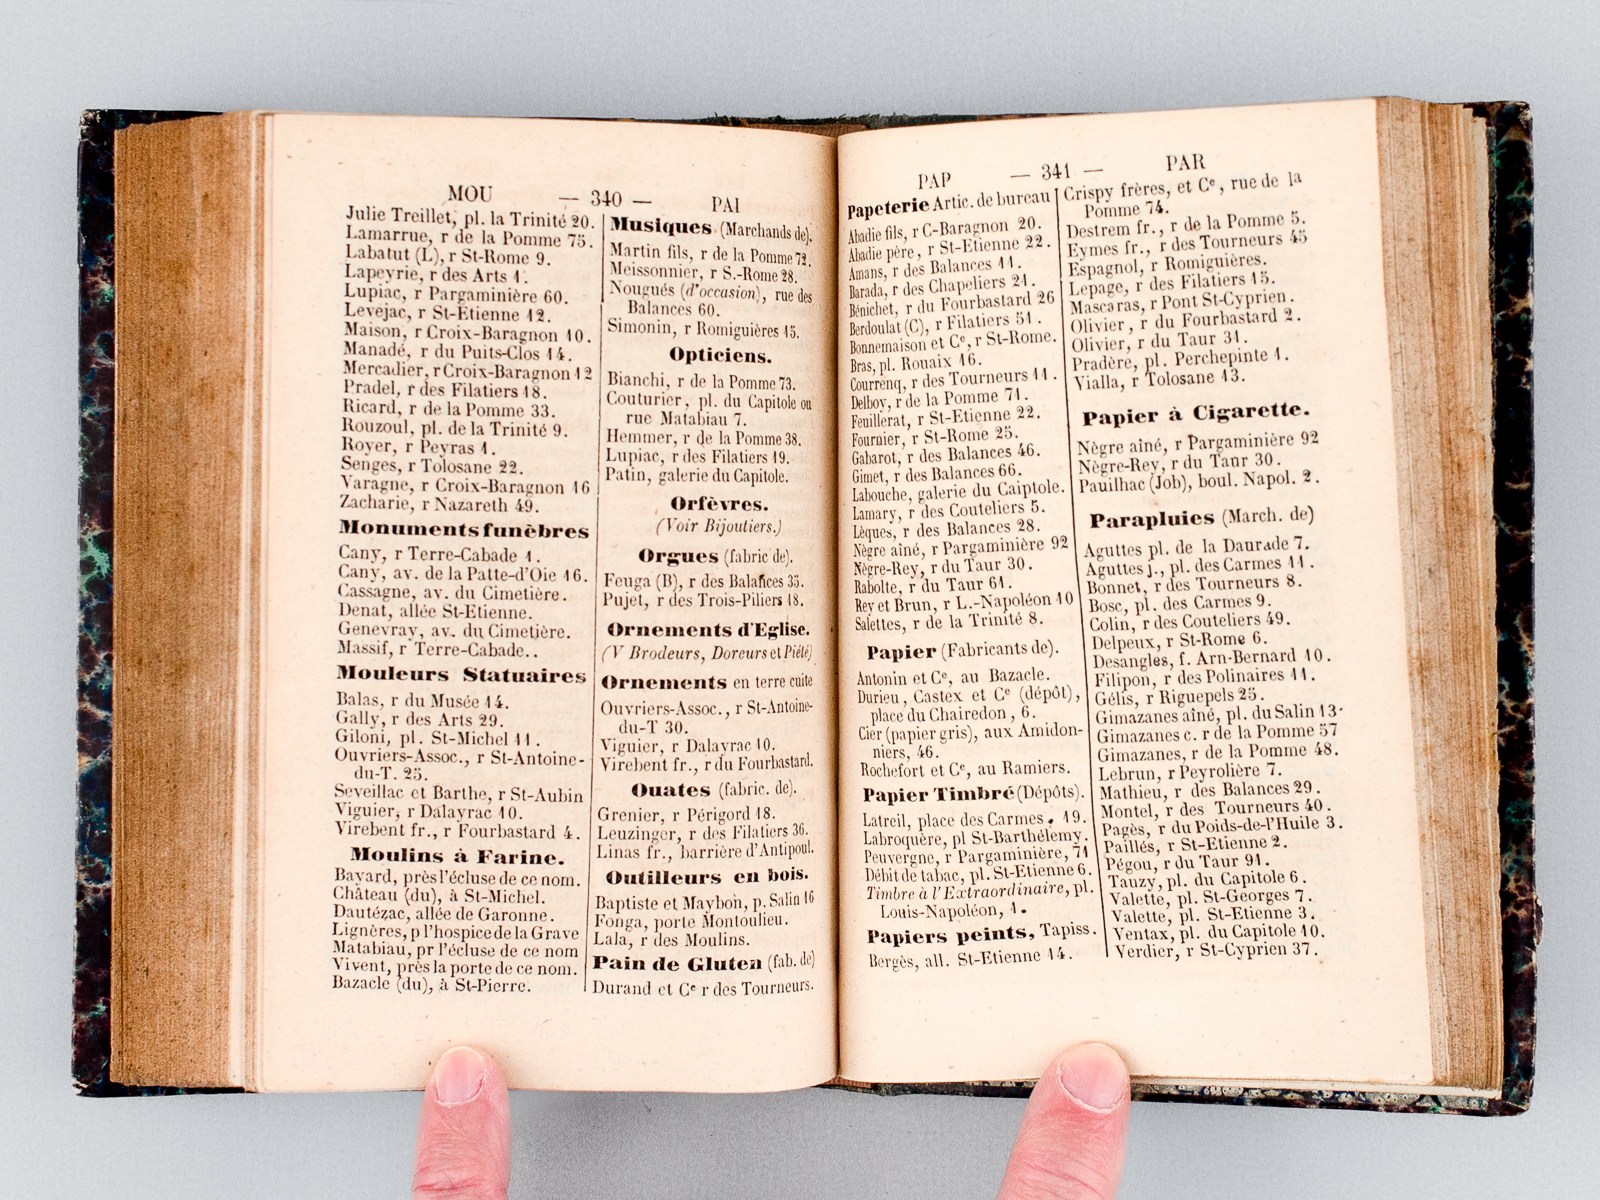 MOU — 340 — PAI
Julie Treillet, pl. la Trinité 20.
Lamarrue, r de la Pomme 75.
Labatut (L), r St-Rome 9.
Lapeyrie, r des Arts 1.
Lupiac, r Pargaminière 60.
Levejac, r St-Etienne 12.
Maison, r Croix-Baragnon 10.
Manadé, r du Puits-Clos 14.
Mercadier, r Croix-Baragnon 12
Pradel, r des Filatiers 18.
Ricard, r de la Pomme 33.
Rouzoul, pl. de la Trinité 9.
Royer, r Peyras 1.
Senges, r Tolosane 22.
Varagne, r Croix-Baragnon 16
Zacharie, r Nazareth 49.
Monuments funèbres
Cany, r Terre-Cabade 1.
Cany, av. de la Patte-d'Oie 16.
Cassagne, av. du Cimetière.
Denat, allée St-Etienne.
Genevray, av. du Cimetière.
Massif, r Terre-Cabade..
Mouleurs Statuaires
Balas, r du Musée 14.
Gally, r des Arts 29.
Giloni, pl. St-Michel 11.
Ouvriers-Assoc., r St-Antoine-
du-T. 25.
Seveillac et Barthe, r St-Aubin
Viguier, r Dalayrac 10.
Virebent fr., r Fourbastard 4.
Moulins à Farine.
Bayard, près l'écluse de ce nom.
Château (du), à St-Michel.
Dautézac, allée de Garonne.
Lignères, p l'hospice de la Grave
Matabiau, pr l'écluse de ce nom
Vivent, près la porte de ce nom.
Bazacle (du), à St-Pierre.
Musiques (Marchands de).
Martin fils, r de la Pomme 72.
Meissonnier, r S.-Rome 28.
Nougués (d'occasion), rue des
Balances 60.
Simonin, r Romiguières 15.
Opticiens.
Bianchi, r de la Pomme 73.
Couturier, pl. du Capitole ou
rue Matabiau 7.
Hemmer, r de la Pomme 38.
Lupiac, r des Filatiers 19.
Patin, galerie du Capitole.
Orfèvres.
(Voir Bijoutiers.)
Orgues (fabric de).
Feuga (B), r des Balances 35.
Pujet, r des Trois-Piliers 18.
Ornements d'Eglise.
(V Brodeurs, Doreurs et Piété)
Ornements en terre cuite
Ouvriers-Assoc., r St-Antoine-
du-T 30.
Viguier, r Dalayrac 10.
Virebent fr., r du Fourbastard.
Ouates (fabric. de).
Grenier, r Périgord 18.
Leuzinger, r des Filatiers 36.
Linas fr., barrière d'Antipoul.
Outilleurs en bois.
Baptiste et Maybon, p. Salin 16
Fonga, porte Montoulieu.
Lala, r des Moulins.
Pain de Gluten (fab. de)
Durand et Ce r des Tourneurs.
PAP — 341 — PAR
Papeterie Artic. de bureau
Abadie fils, r C-Baragnon 20.
Abadie père, r St-Etienne 22.
Amans, r des Balances 11.
Barada, r des Chapeliers 21.
Bénichet, r du Fourbastard 26
Berdoulat (C), r Filatiers 51.
Bonnemaison et Ce, r St-Rome.
Bras, pl. Rouaix 16.
Courrenq, r des Tourneurs 11.
Delboy, r de la Pomme 71.
Feuillerat, r St-Etienne 22.
Fournier, r St-Rome 25.
Gabarot, r des Balances 46.
Gimet, r des Balances 66.
Labouche, galerie du Caiptole.
Lamary, r des Couteliers 5.
Lèques, r des Balances 28.
Nègre aîné, r Pargaminière 92
Nègre-Rey, r du Taur 30.
Rabolte, r du Taur 61.
Rey et Brun, r L.-Napoléon 10
Salettes, r de la Trinité 8.
Papier (Fabricants de).
Antonin et Ce, au Bazacle.
Durieu, Castex et Ce (dépôt),
place du Chairedon, 6.
Cier (papier gris), aux Amidon-
niers, 46.
Rochefort et Ce, au Ramiers.
Papier Timbré (Dépôts).
Latreil, place des Carmes, 19.
Labroquère, pl St-Barthélemy.
Peuvergne, r Pargaminière, 71
Débit de tabac, pl. St-Etienne 6.
Timbre à l'Extraordinaire, pl.
Louis-Napoléon, 1.
Papiers peints, Tapiss.
Bergès, all. St-Etienne 14.
Crispy frères, et Ce, rue de la
Pomme 74.
Destrem fr., r de la Pomme 5.
Eymes fr., r des Tourneurs 45
Espagnol, r Romiguières.
Lepage, r des Filatiers 15.
Mascaras, r Pont St-Cyprien.
Olivier, r du Fourbastard 2.
Olivier, r du Taur 31.
Pradère, pl. Perchepinte 1.
Vialla, r Tolosane 13.
Papier à Cigarette.
Nègre aîné, r Pargaminière 92
Nègre-Rey, r du Taur 30.
Pauilhac (Job), boul. Napol. 2.
Parapluies (March. de)
Aguttes pl. de la Daurade 7.
Aguttes j., pl. des Carmes 11.
Bonnet, r des Tourneurs 8.
Bosc, pl. des Carmes 9.
Colin, r des Couteliers 49.
Delpeux, r St-Rome 6.
Desangles, f. Arn-Bernard 10.
Filipon, r des Polinaires 11.
Gélis, r Riguepels 25.
Gimazanes aîné, pl. du Salin 13.
Gimazanes c. r de la Pomme 57
Gimazanes, r de la Pomme 48.
Lebrun, r Peyrolière 7.
Mathieu, r des Balances 29.
Montel, r des Tourneurs 40.
Pagès, r du Poids-de-l'Huile 3.
Paillés, r St-Etienne 2.
Pégou, r du Taur 91.
Tauzy, pl. du Capitole 6.
Valette, pl. St-Georges 7.
Valette, pl. St-Etienne 3.
Ventax, pl. du Capitole 10.
Verdier, r St-Cyprien 37.